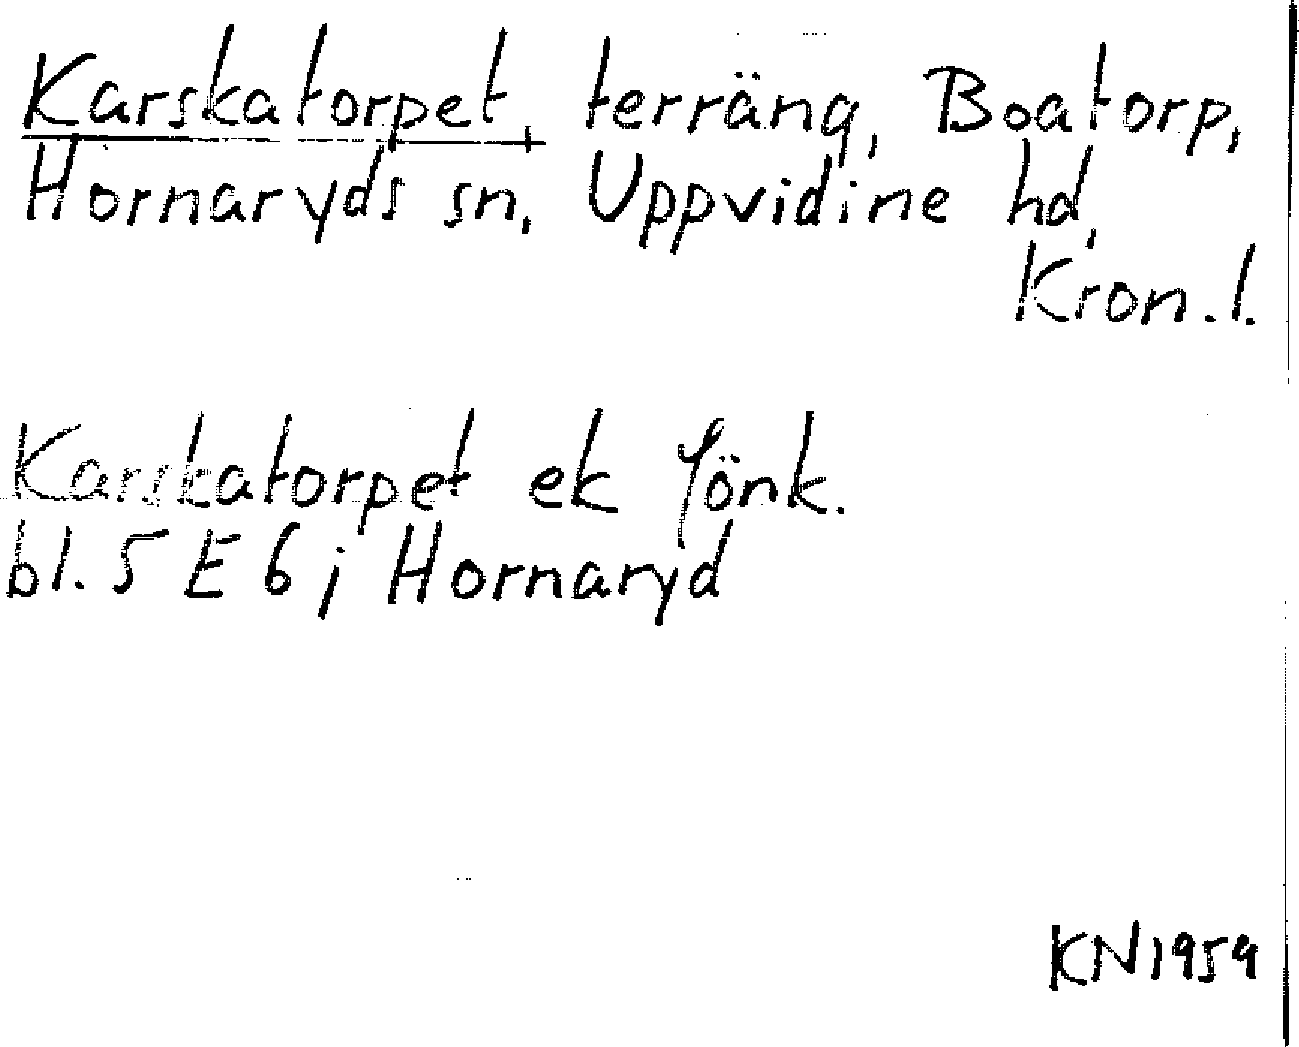 Karskatorpet, terräng, Boatorp,
Hornaryds sn, Uppvidine hd,
Kron. l.
Karskatorpet ek Jönk.
bl. 5 E 6 i Hornaryd
KN 1959